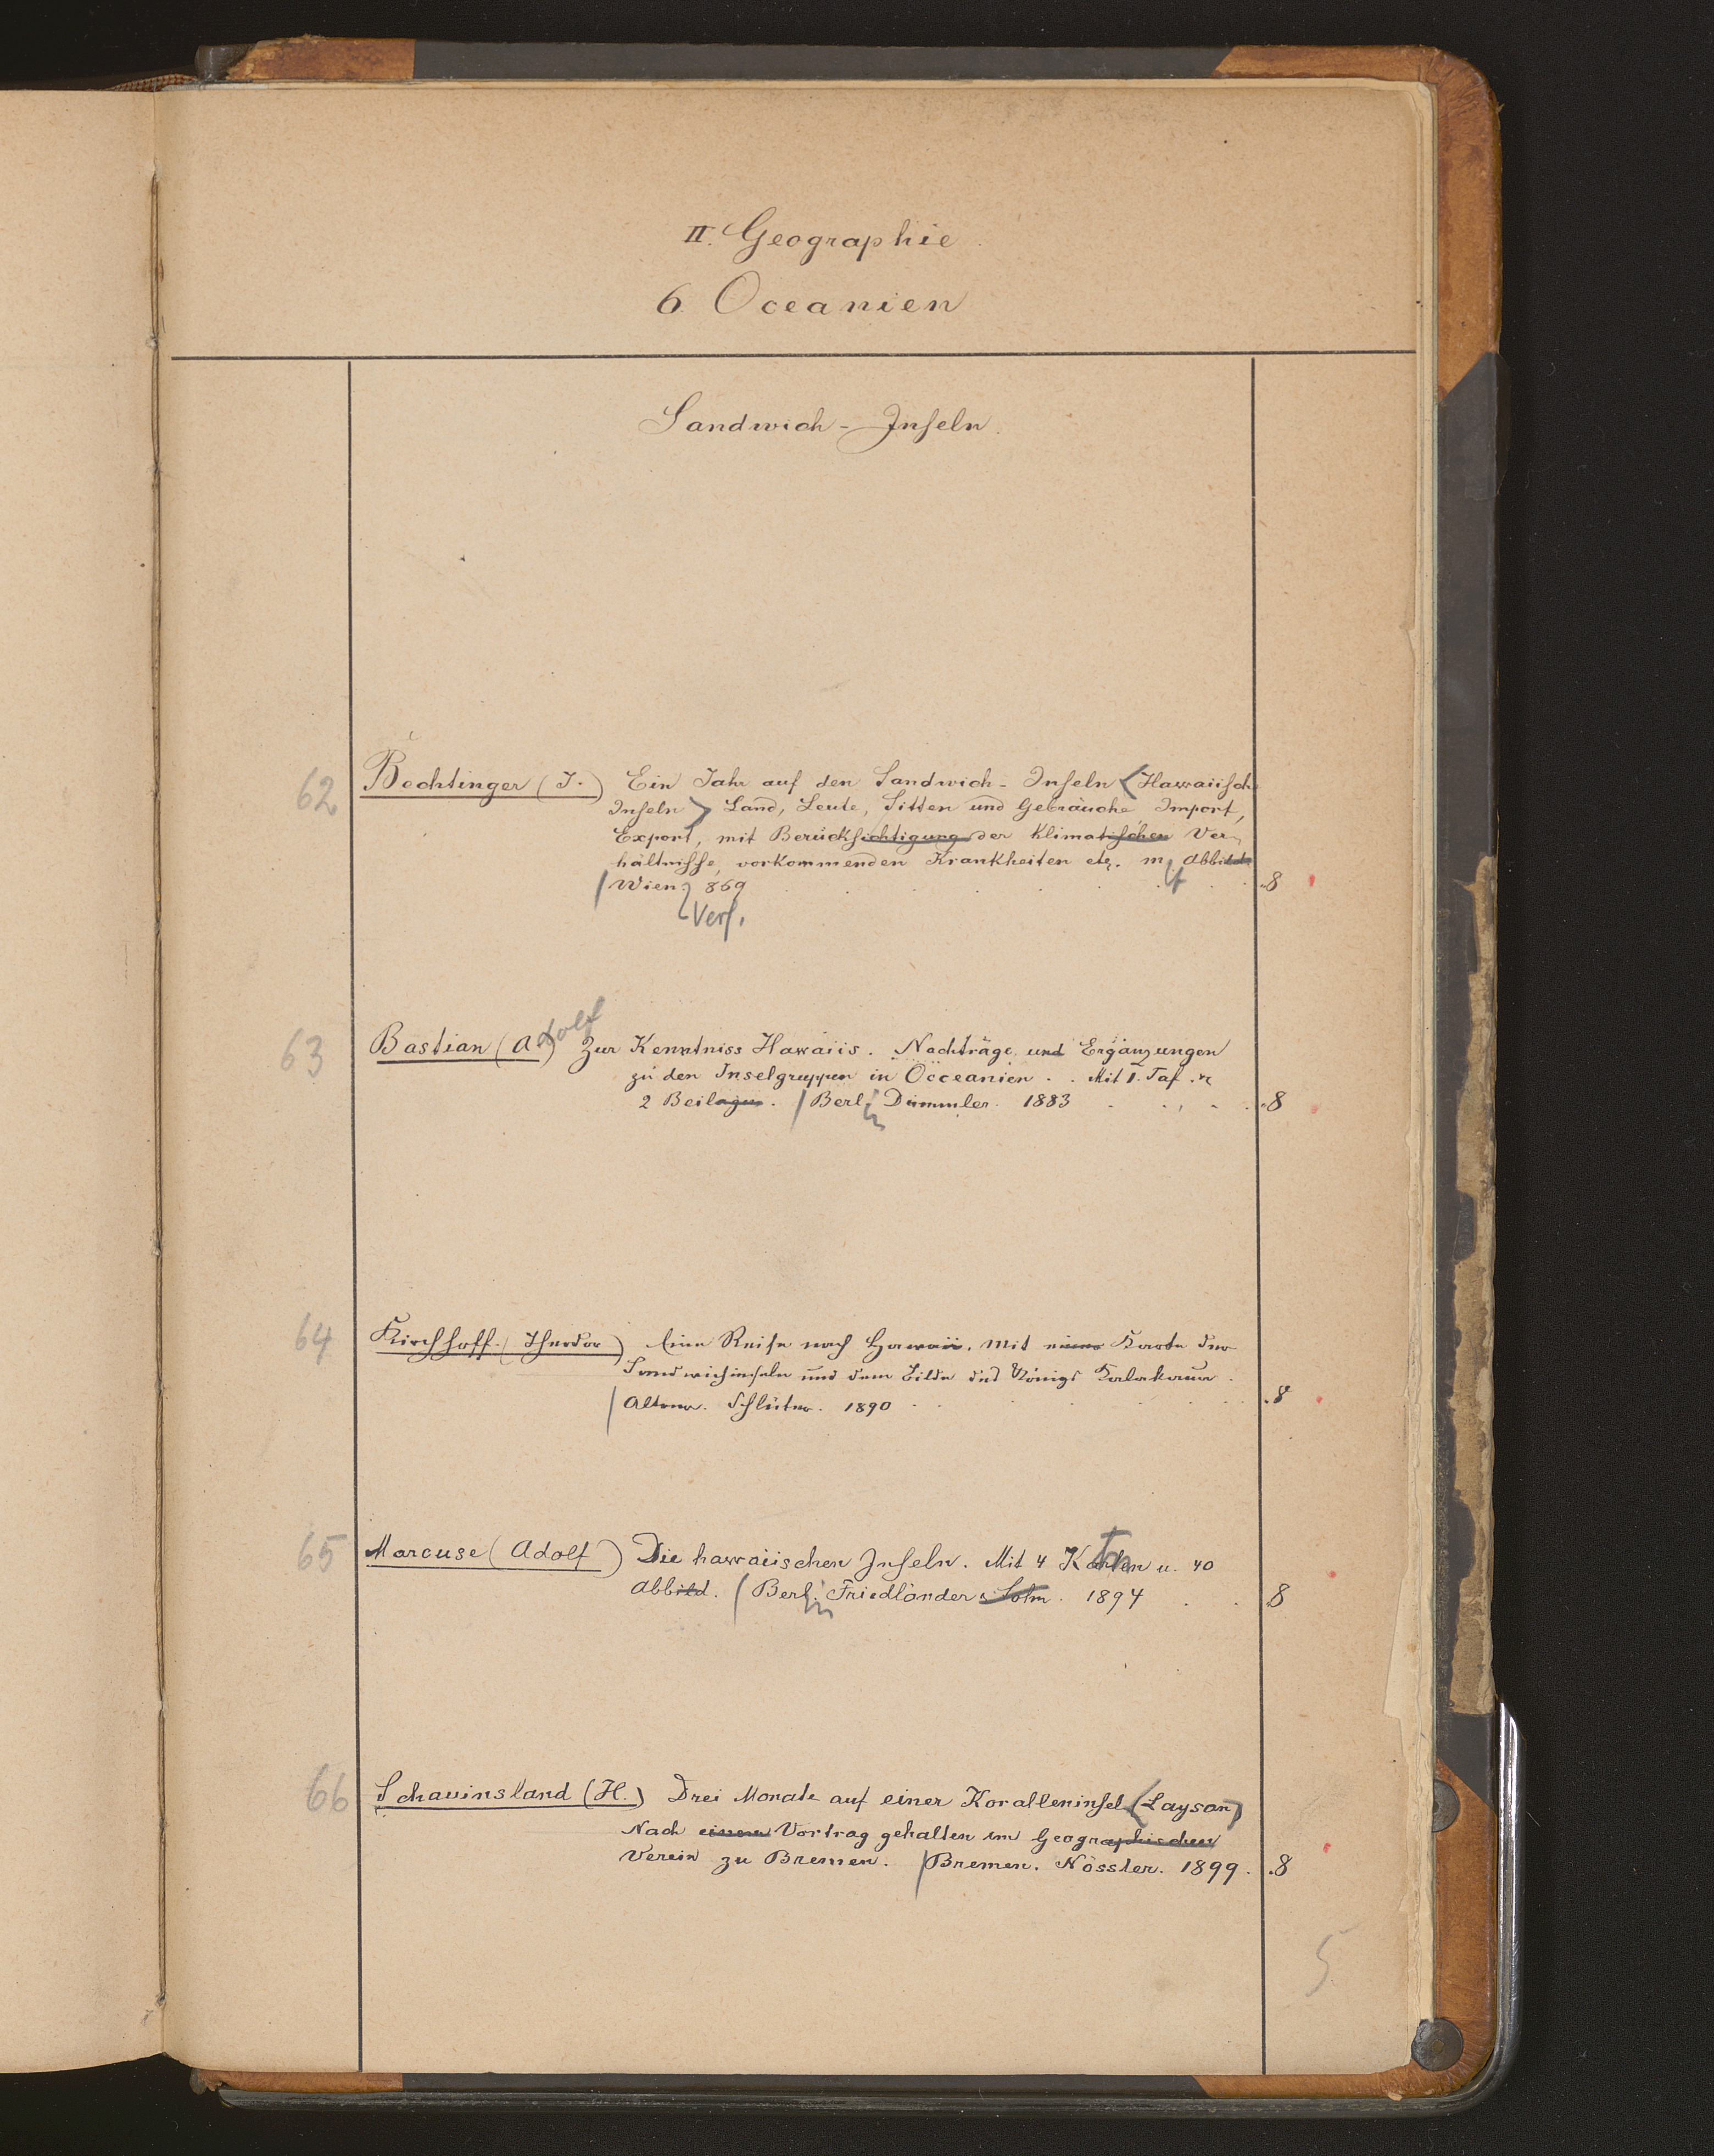 II. Geographie.
6. Oceanien
Sandwich-Inseln.
62 Bechtinger (J.) Ein Jahr auf den Sandwich-Inseln <Hawaiisch
Inseln> Land, Leute, Sitten und Gebräuche Import,
Export, mit Berücksichtigung der klimatischen Ver-
hältnisse, vorkommenden Krankheiten etc. m. Abbild.
/ Wien 869 8
Verf.
63 Bastian (Adolf) Zur Kenntniss Hawaiis. Nachträge und Ergänzungen
zu den Inselgruppen in Occeanien. Mit 1. Taf. u
2 Beilagen. / Berlin Dümmler. 1883 8
64 Kirchhoff (Theodor) Eine Reise nach Hawaii. Mit einer Karte der
Sandwichinseln und dem Bilde des Königs Kalakaua.
/ Altona. Schlüter. 1890 8
65 Marcuse (Adolf) Die hawaiischen Inseln. Mit 4 Karten u. 40
Abbild. / Berlin Friedländer & Sohn. 1894 8
66 Schauinsland (H.) Drei Monate auf einer Koralleninsel (Laysan)
Nach einem Vortrag gehalten im Geographischen
Verein zu Bremen. / Bremen. Nössler. 1899. 8
5